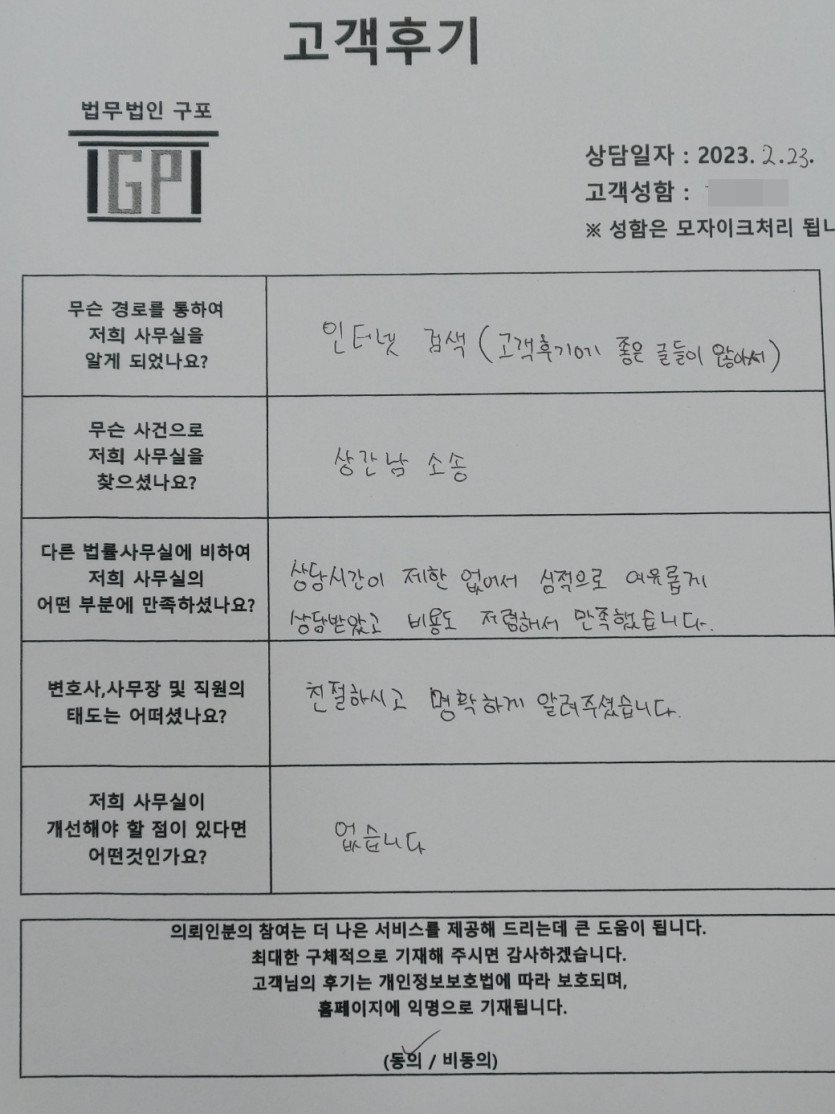 고객후기
법무법인 구포
GP
상담일자 : 2023. 2. 23.
고객성함 :
※ 성함은 모자이크처리 됩니
무슨 경로를 통하여
저희 사무실을
알게 되었나요?
인터넷 검색 (고객후기에 좋은 글들이 많아서)
무슨 사건으로
저희 사무실을
찾으셨나요?
상간남 소송
다른 법률사무실에 비하여
저희 사무실의
어떤 부분에 만족하셨나요?
상담시간이 제한 없어서 심적으로 여유롭게
상담받았고 비용도 저렴해서 만족했습니다.
변호사,사무장 및 직원의
태도는 어떠셨나요?
친절하시고 명확하게 알려주셨습니다.
저희 사무실이
개선해야 할 점이 있다면
어떤것인가요?
없습니다
의뢰인분의 참여는 더 나은 서비스를 제공해 드리는데 큰 도움이 됩니다.
최대한 구체적으로 기재해 주시면 감사하겠습니다.
고객님의 후기는 개인정보보호법에 따라 보호되며,
홈페이지에 익명으로 기재됩니다.
(동의 / 비동의)